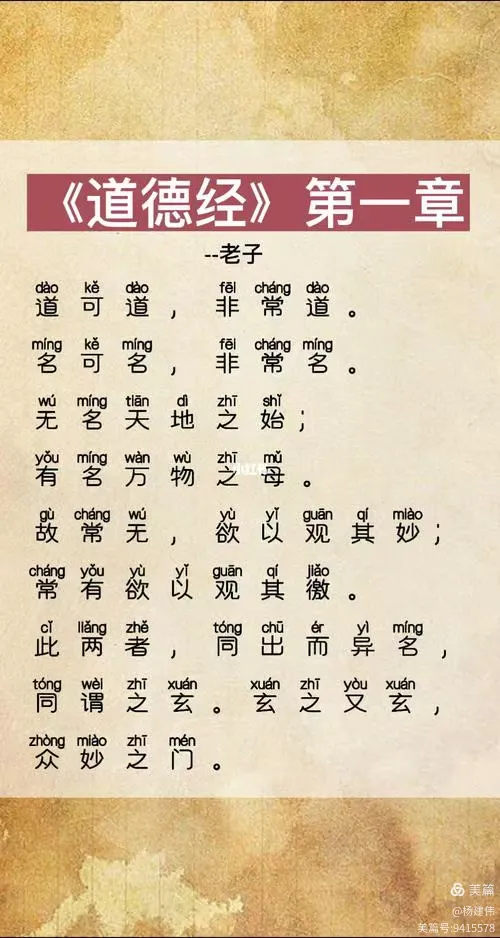 《道德经》第一章
--老子
dào kě dào fēi cháng dào
道可道，非常道。
míng kě míng fēi cháng míng
名可名，非常名。
wú míng tiān dì zhī shǐ
无名天地之始；
yǒu míng wàn wù zhī mǔ
有名万物之母。
gù cháng wú yù yǐ guān qí miào
故常无，欲以观其妙；
cháng yǒu yù yǐ guān qí jiǎo
常有欲以观其徼。
cǐ liǎng zhě tóng chū ér yì míng
此两者，同出而异名，
tóng wèi zhī xuán xuán zhī yòu xuán
同谓之玄。玄之又玄，
zhòng miào zhī mén
众妙之门。
美篇
@杨建伟
美篇号:9415578